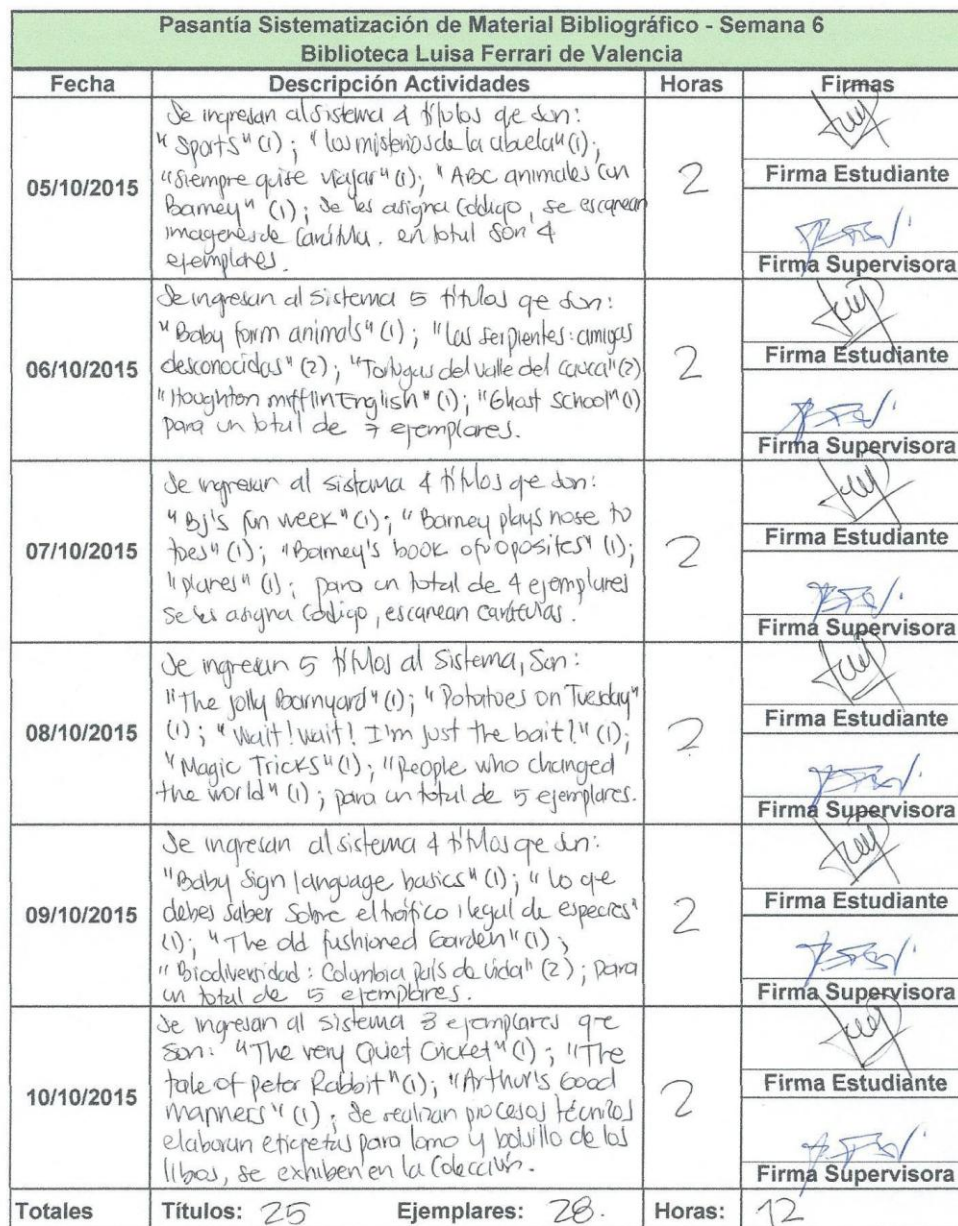 Pasantía Sistematización de Material Bibliográfico - Semana 6
Biblioteca Luisa Ferrari de Valencia
Fecha Descripción Actividades Horas Firmas
05/10/2015
Se ingresan al sistema 4 títulos qe son:
"Sports" (1); "los misterios de la abuela" (1);
"Siempre quise viajar" (1); "ABC animales con
Barney" (1); se les asigna código, se escanean
imagenes de carátula. en total son 4
ejemplares.
2
Firma Estudiante
Firma Supervisora
06/10/2015
Se ingresan al sistema 5 títulos qe son:
"Baby farm animals" (1); "las serpientes: amigas
desconocidas" (2); "Tortugas del valle del cauca" (2)
"Houghton mifflin English" (1); "Ghost School" (1)
para un total de 7 ejemplares.
2
Firma Estudiante
Firma Supervisora
07/10/2015
Se ingresan al sistema 4 títulos qe son:
"Bj's fun week" (1); "Barney plays nose to
toes" (1); "Barney's book of oposites" (1);
"planes" (1); para un total de 4 ejemplares
se les asigna código, escanean carátulas.
2
Firma Estudiante
Firma Supervisora
08/10/2015
Se ingresan 5 títulos al sistema, Son:
"The jolly Barnyard" (1); "Potatoes on Tuesday"
(1); "Wait! wait! I'm just the bait!" (1);
"Magic Tricks" (1); "People who changed
the world" (1); para un total de 5 ejemplares.
2
Firma Estudiante
Firma Supervisora
09/10/2015
Se ingresan al sistema 4 títulos qe son:
"Baby sign language basics" (1); "lo qe
debes saber sobre el tráfico ilegal de especies"
(1); "The old fashioned Garden" (1);
"Biodiversidad: Colombia país de vida" (2); para
un total de 5 ejemplares.
2
Firma Estudiante
Firma Supervisora
10/10/2015
Se ingresan al sistema 3 ejemplares qe
son: "The very Quiet Cricket" (1); "The
tale of peter Rabbit" (1); "Arthur's Good
manners" (1); se realizan procesos técnicos
elaboran etiqetas para lomo y bolsillo de los
libos, se exhiben en la colección.
2
Firma Estudiante
Firma Supervisora
Totales Títulos: 25 Ejemplares: 28. Horas: 12